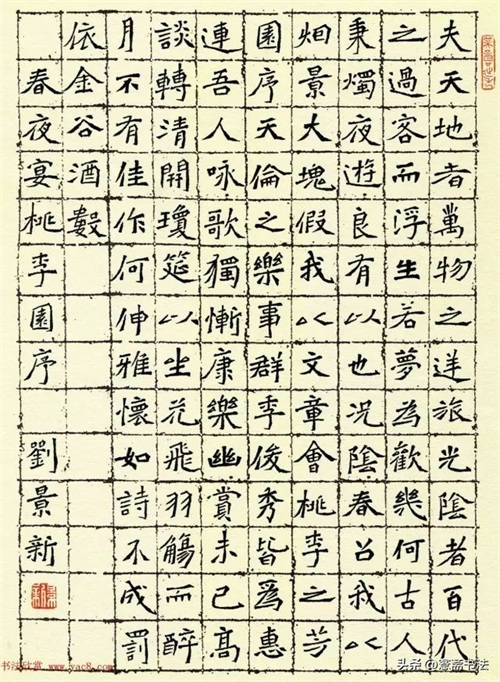 夫天地者萬物之逆旅光陰者百代
之過客而浮生若夢為歡幾何古人
秉燭夜遊良有以也況陰春召我以
烟景大塊假我以文章會桃李之芳
園序天倫之樂事群季俊秀皆為惠
連吾人咏歌獨慚康樂幽賞未已高
談轉清開瓊筵以坐花飛羽觴而醉
月不有佳作何伸雅懷如詩不成罰
依金谷酒數
春夜宴桃李園序 劉景新
书法欣赏 www.yac8.com
头条 @斋书法